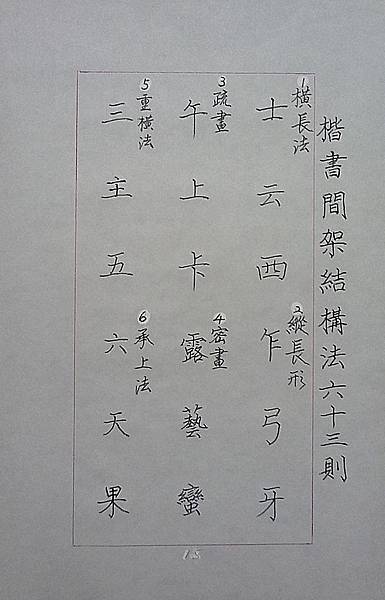 楷書間架結構法六十三則
1橫長法
士云西
2縱長形
乍弓牙
3疏畫
午上卡
4密畫
露藝蠻
5重橫法
三主五
6承上法
六天果